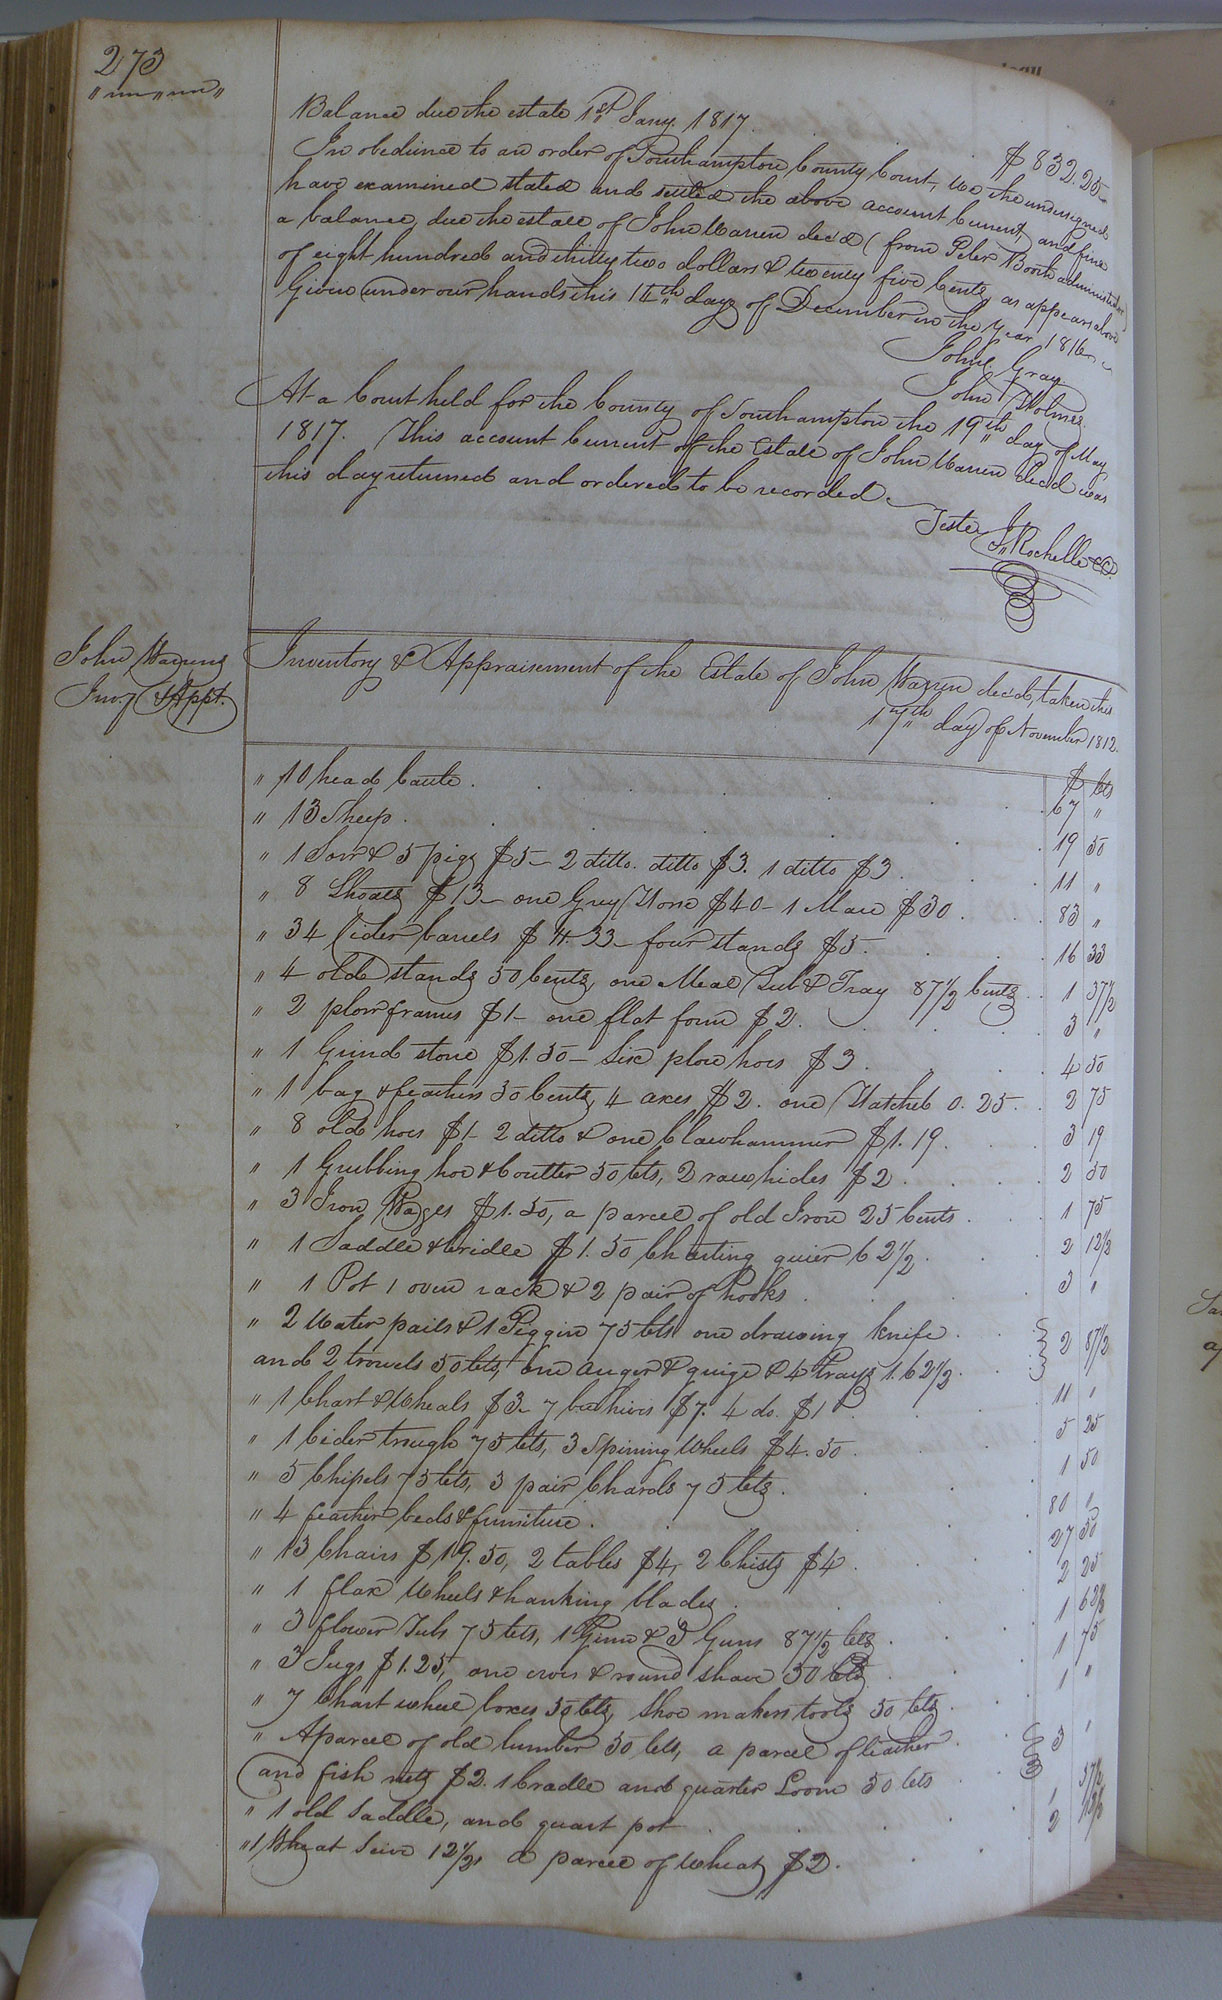 273
Balance due the estate 1st Jany. 1817. $832.25
In obedience to an order of Southampton County Court, we the undersigned
have examined stated and settled the above account Current, and find
a balance due the estate of John Warren decd (from Peter Booth administrator)
of eight hundred and thirty two dollars & twenty five Cents, as appears above
Given under our hands this 14th day of December in the year 1816
John Gray
John Holmes
At a Court held for the County of Southampton the 19th day of May
1817. This account Current of the Estate of John Warren Decd was
this day returned and ordered to be recorded.
Teste J. Rochelle CC.
John Warrens
Inv.y & Appt.
Inventory & Appraisement of the Estate of John Warren decd, taken this
17th day of November 1812.
$ Cts
" 10 head Cattle . 67 "
" 13 Sheep . 19 50
" 1 Sow & 5 pigs $5 - 2 ditto ditto $3. 1 ditto $3 . 11 "
" 8 Shoats $13 - one Grey Horse $40 - 1 Mare $30 . 83 "
" 34 Cider barrels $11.33 - four stands $5 . 16 33
" 4 old stands 50 Cents, one Meal Tub & Tray 87 1/2 Cents . 1 37 1/2
" 2 plow frames $1 - one flat form $2 . 3 "
" 1 Grind stone $1.50 - Six plow hoes $3 . 4 50
" 1 bag & feathers 50 Cents, 4 axes $2. one Hatchet 0.25 . 2 75
" 8 old hoes $1 - 2 ditto & one Clawhammer $1.19 . 3 19
" 1 Grubbing hoe & Coulter 50 Cts, 2 raw hides $2 . 2 50
" 3 Iron Wages $1.50, a parcel of old Iron 25 Cents . 1 75
" 1 Saddle & bridle $1.50 Charting quier 62 1/2 . 2 12 1/2
" 1 Pot 1 oven rack & 2 pair of hooks . 3 "
" 2 Water pails & 1 Piggin 75 Cts one drawing knife
and 2 trowels 50 Cts, One auger & guige & 4 trays 1.62 1/2 . 2 87 1/2
" 1 Chart & Wheals $3 - 7 bee hives $7. 4 do. $1 . 11 "
" 1 Cider trough 75 Cts, 3 Spining Wheels $4.50 . 5 25
" 5 Chipels 75 Cts, 3 pair Chards 75 Cts . 1 50
" 4 feather beds & furniture . 80 "
" 13 Chairs $19.50, 2 tables $4, 2 Chists $4 . 27 50
" 1 flax Wheels & hanking blades . 2 25
" 3 flower Tubs 75 Cts, 1 & 3 Guns 87 1/2 Cts . 1 62 1/2
" 3 Jugs $1.25, one & round shave 50 Cts . 1 75
" 7 Chart wheel boxes 50 Cts, Shoe makers tools 50 Cts . 1 "
" A parcel of old lumber 50 Cts, a parcel of leather
and fish nets $2. 1 Cradle and quarter Loom 50 Cts . 3 "
" 1 old Saddle, and quart pot . " 37 1/2
" 1 Wheat Seive 12 1/2, a parcel of Wheat $2 . 2 12 1/2